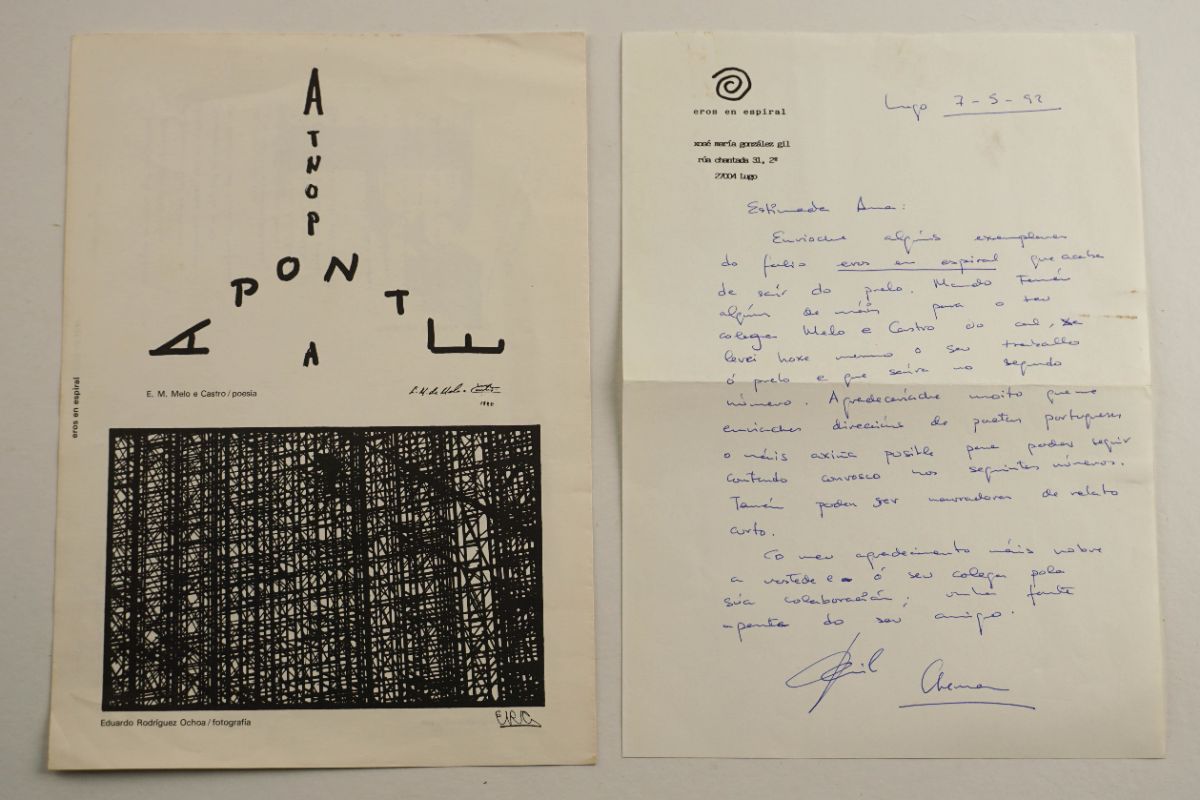 A
T
N
O
P
A PONTE
A
E. M. Melo e Castro / poesia
E. M. de Melo e Castro
1990
eros en espiral
Eduardo Rodríguez Ochoa / fotografía
ERO
eros en espiral
xosé maría gonzález gil
rúa chantada 31, 2º
27004 Lugo
Lugo 7-5-92
Estimada Ana:
Envíoche algúns exemplares
do folio eros en espiral que acaba
de saír do prelo. Mando tamén
algún de máis para o seu
colega Melo e Castro do cal, xa
levei hoxe mesmo o seu traballo
ó prelo e que sairá no segundo
número. Agradeceríache moito que me
enviaches direccións de poetas portugueses
o máis axiña posible para poder seguir
contando convosco nos seguintes números.
Tamén poden ser narradores de relato
curto.
Co meu agradecemento máis nobre
a vostede e ó seu colega pola
súa colaboración; unha forte
aperta do seu amigo.
Gil Chema